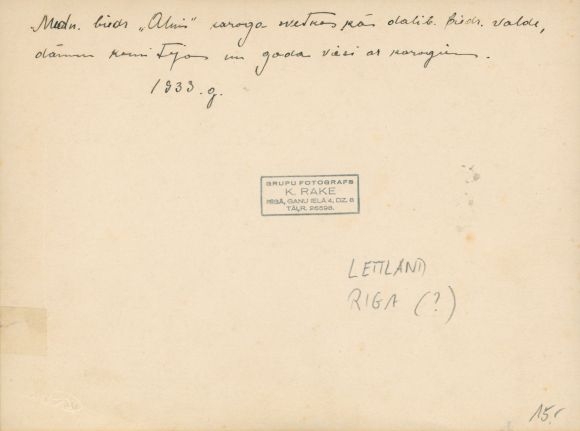 Medn. biedr. „Alnis" karoga svētkos kās dalib. biedr. valde,
dāmu komiteja un goda viesi ar karogiem.
1933. g.
GRUPU FOTOGRAFS
K. RAKE
RĪGĀ, GANU IELĀ 4, DZ. 6
TĀLR. 26596.
LETTLAND
RIGA (?)
15.-